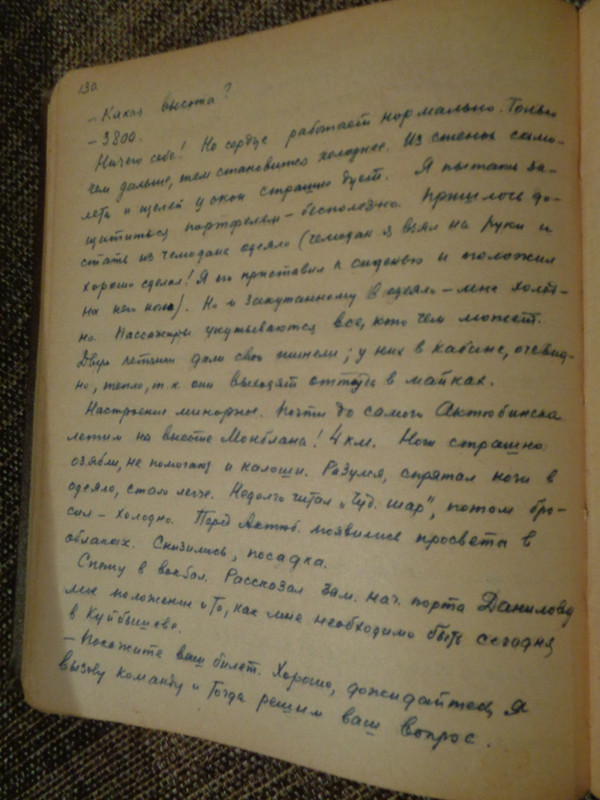 130.
– Какая высота?
– 3800.
Ничего себе! Но сердце работает нормально. Только
чем дальше, тем становится холоднее. Из стенок само-
лета и щелей у окон страшно дует. Я пытаюсь за-
щититься портфелем – бесполезно. Пришлось до-
стать из чемодана одеяло (чемодан я взял на руки и
хорошо сделал! Я его приставил к сиденью и положил
на него ноги). Но и закутанному в одеяло – мне холод-
но. Пассажиры укутываются все, кто чем может.
Двум летчики дали свои шинели; у них в кабине, очевид-
но, тепло, т.к. они выходят оттуда в майках.
Настроение минорное. Почти до самого Актюбинска
летим на высоте Монблана! 4 км. Ноги страшно
озябли, не помогают и калоши. Разулся, спрятал ноги в
одеяло, стало легче. Недолго читал „Чуд. шар", потом бро-
сил – холодно. Перед Актюб. появились просветы в
облаках. Снизились, посадка.
Спешу в вокзал. Рассказал зам. нач. порта Данилову
мое положение и то, как мне необходимо быть сегодня
в Куйбышеве.
– Покажите ваш билет. Хорошо, дожидайтесь, я
вызову команду и тогда решим ваш вопрос.